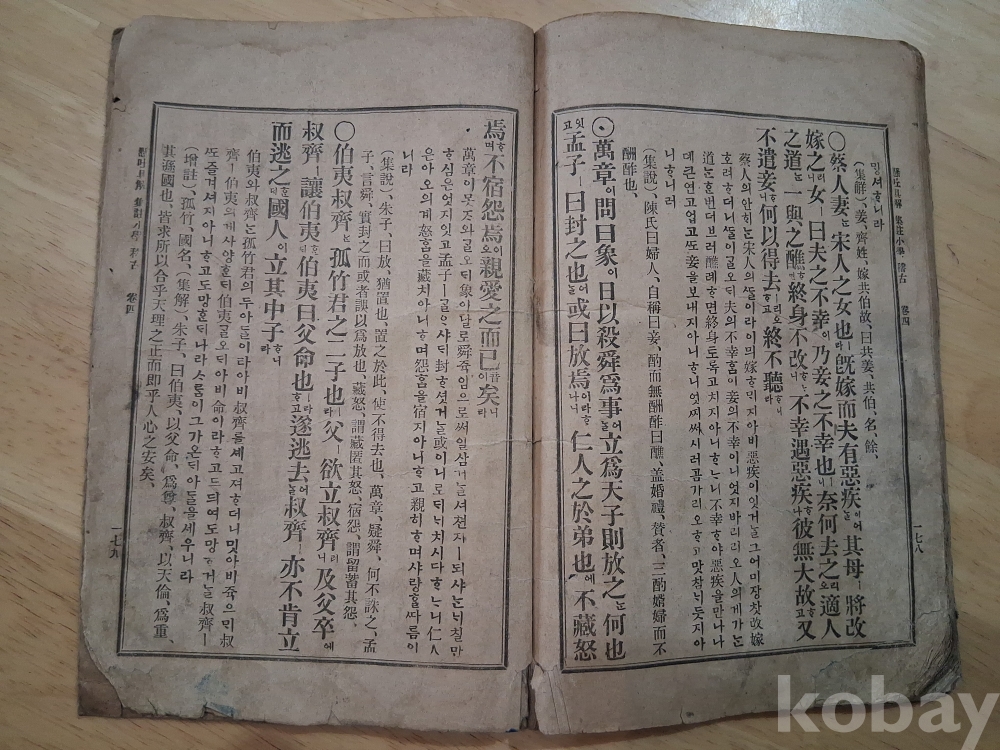 懸吐具解 集註小學 稽古 卷四 一七八
밍셔ᄒᆞ니라
(集解)、姜、齊姓、嫁共伯故、曰共姜、共伯、名、餘、
○蔡人妻ᄂᆞᆫ宋人之女也ㅣ라旣嫁而夫有惡疾이어ᄂᆞᆯ其母ㅣ將改
嫁之러니女ㅣ曰夫之不幸이乃妾之不幸也ㅣ니奈何去之리오適人
之道ᄂᆞᆫ一與之醮ᄒᆞ면終身不改ᄒᆞᄂᆞ니不幸遇惡疾ᄒᆞ나彼無大故ᄒᆞ고又
不遣妾ᄒᆞ니何以得去ㅣ리오ᄒᆞ고終不聽ᄒᆞ니라
蔡人의안ᄒᆡᄂᆞᆫ宋人의ᄯᆞᆯ이라이믜嫁ᄒᆞᄆᆡ지아비惡疾이잇거ᄂᆞᆯ그어미쟝ᄎᆞᆺ改嫁
ᄒᆞ려ᄒᆞ더니ᄯᆞᆯ이ᄀᆞᆯ오ᄃᆡ夫의不幸홈이妾의不幸이니엇지바리리오人의게가ᄂᆞᆫ
道ᄂᆞᆫᄒᆞᆫ번더브러醮례ᄒᆞ면終身토록고치지아니ᄒᆞᄂᆞ니不幸ᄒᆞ야惡疾을만나나
뎌큰연고업고ᄯᅩ妾을보내지아니ᄒᆞ니엇ᄶᅧ시러곰가리오ᄒᆞ고맛ᄎᆞᆷᄂᆡ듯지아
니ᄒᆞ니라
(集說)、陳氏曰婦人、自稱曰妾、酌而無酬酢曰醮、盖婚禮、賛者、三酌婿婦而不
酬酢也、
○萬章이問曰象이日以殺舜爲事ㅣ어ᄂᆞᆯ立爲天子則放之ᄂᆞᆫ何也
ㅣ잇고孟子ㅣ曰封之也ㅣ어ᄂᆞᆯ或曰放焉이라ᄒᆞ나니仁人之於弟也애不藏怒
焉ᄒᆞ며不宿怨焉이오親愛之而已矣니라
萬章이뭇ᄌᆞ와ᄀᆞᆯ오ᄃᆡ象이날로舜쥭임으로써일삼거ᄂᆞᆯ셔쳔ᄌᆞㅣ되샤ᄂᆞᆫ니칠만
ᄒᆞ심은엇지잇고孟子ㅣᄀᆞᆯᄋᆞ샤ᄃᆡ封ᄒᆞ셧거ᄂᆞᆯ或이니로ᄃᆡᄂᆡ치시다ᄒᆞᄂᆞ니仁人
은아오의게怒홈을藏치아니ᄒᆞ며怨홈을宿지아니ᄒᆞ고親히ᄒᆞ며사랑ᄒᆞᆯᄯᆞ름이
니라
(集說)、朱子、曰放、猶置也、置之於此、使不得去也、萬章、疑舜、何不誅之、孟
子、言舜、實封之而或者誤以爲放也、藏怒、謂藏匿其怒、宿怨、謂留蓄其怨、
○伯夷叔齊ᄂᆞᆫ孤竹君之二子也ㅣ라父ㅣ欲立叔齊러니及父卒애
叔齊ㅣ讓伯夷ᄒᆞᆫᄃᆡ伯夷曰父命也ㅣ라ᄒᆞ고遂逃去어ᄂᆞᆯ叔齊ㅣ亦不肯立
而逃之ᄒᆞᆫᄃᆡ國人이立其中子ᄒᆞ니라
伯夷와叔齊ᄂᆞᆫ孤竹君의두아ᄃᆞᆯ이라아비叔齊ᄅᆞᆯ셰고져ᄒᆞ더니밋아비쥭으ᄆᆡ叔
齊ㅣ伯夷의게사양ᄒᆞᆫᄃᆡ伯夷ᄀᆞᆯ오ᄃᆡ아비命이라ᄒᆞ고드듸여도망ᄒᆞ거ᄂᆞᆯ叔齊ㅣ
ᄯᅩ즐겨셔지아니ᄒᆞ고도망ᄒᆞᆫᄃᆡ나라ᄉᆞᄅᆞᆷ이그가온ᄃᆡ아ᄃᆞᆯ을세우니라
(增註)、孤竹、國名、(集解)、朱子、曰伯夷、以父命、爲尊、叔齊、以天倫、爲重、
其遜國也、皆求所以合乎天理之正而卽乎人心之安矣、
懸吐具解 集註小學 稽古 卷四 一七九
kobay